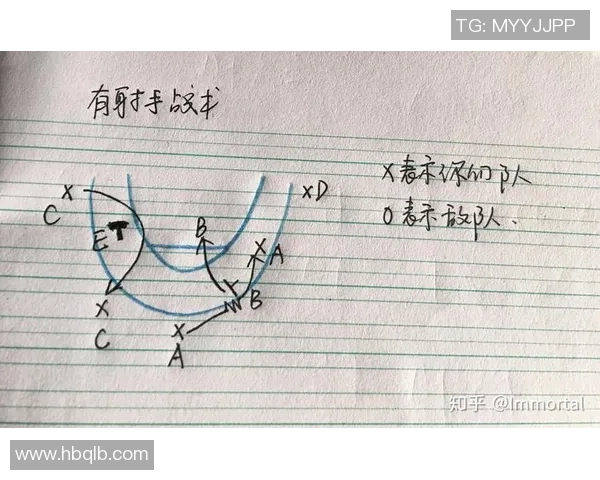 TG: MYYJJPP
有射手战术
X表示你的队
O表示敌队.
X
C
E
X
C
X
A
B
X A
B
XD
知乎 @Immortal
www.hbqlb.com